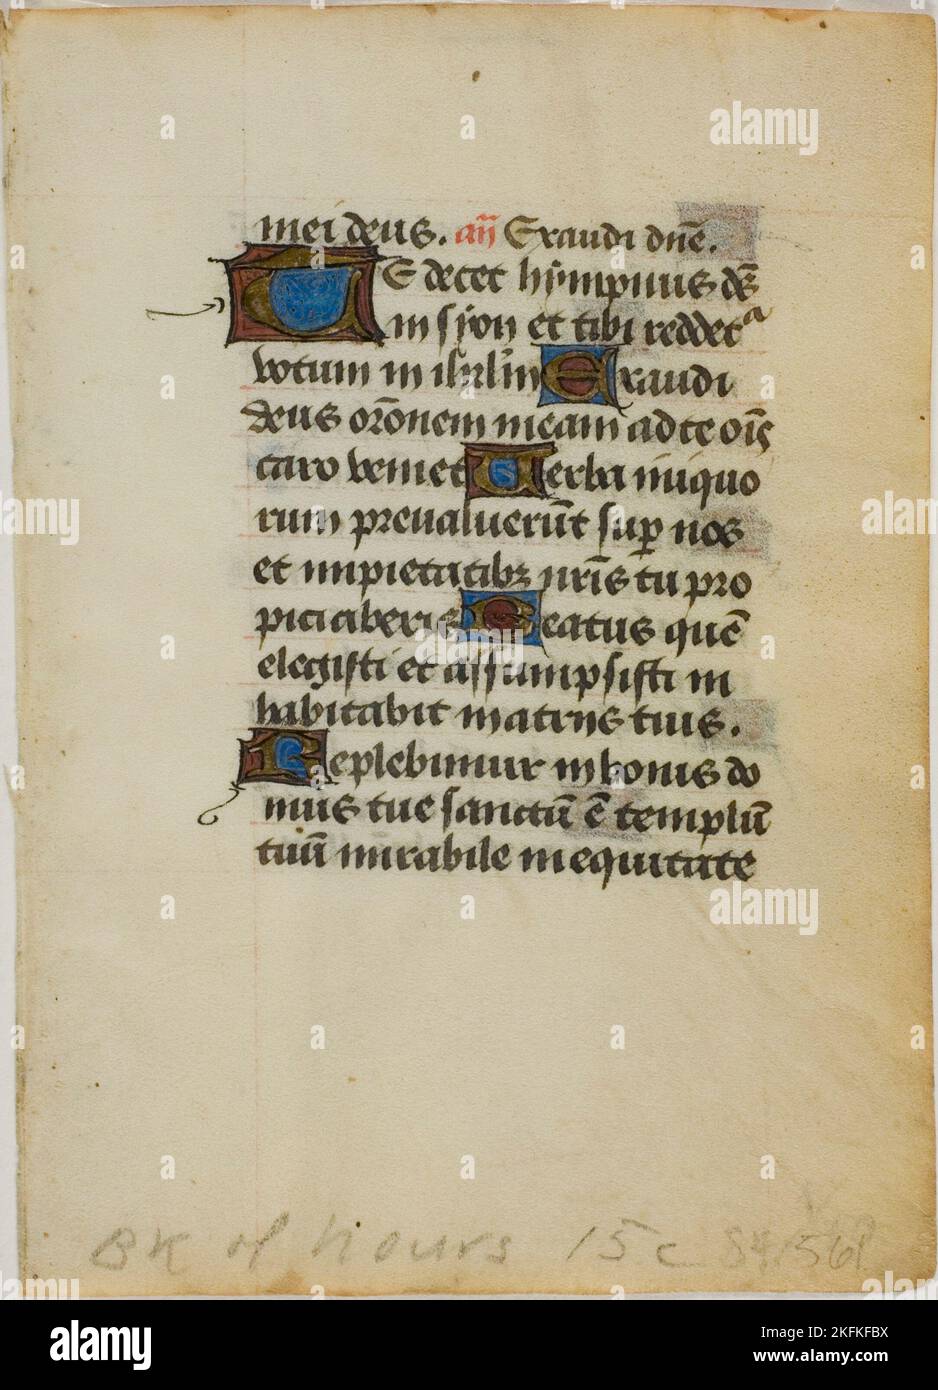 mei deus. an̄ Exaudi dn̄e.
TE decet hympnus ds̄
in syon et tibi reddetᵃ
votum in ihrl̄m Exaudi
deus orōnem meam ad te om̄s
caro veniet Verba iniquo
rum preualuerūt sup̲ nos
et impietatibꝫ nr̄is tu pro
piciaberis Beatus quē
elegisti et assumpsisti in
habitabit in atriis tuis.
Replebimur in bonis do
mus tue sanctū ē templū
tuū mirabile in equitate
BK of hours 15c 84.1568
a
alamy
alamy
Image ID: 2KFKFBX
www.alamy.com